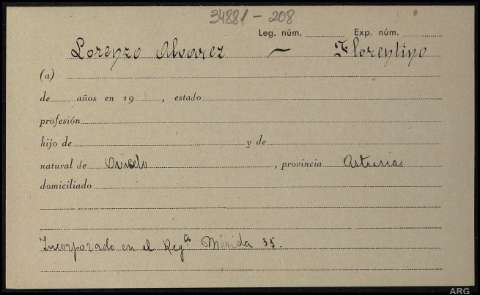 34881 - 208
Leg. núm. Exp. núm.
Lorenzo Alvarez — Florentino
(a)
de años en 19 , estado
profesión
hijo de y de
natural de Oviedo , provincia Asturias
domiciliado
Incorporado en el Regto Mérida 35.
ARG